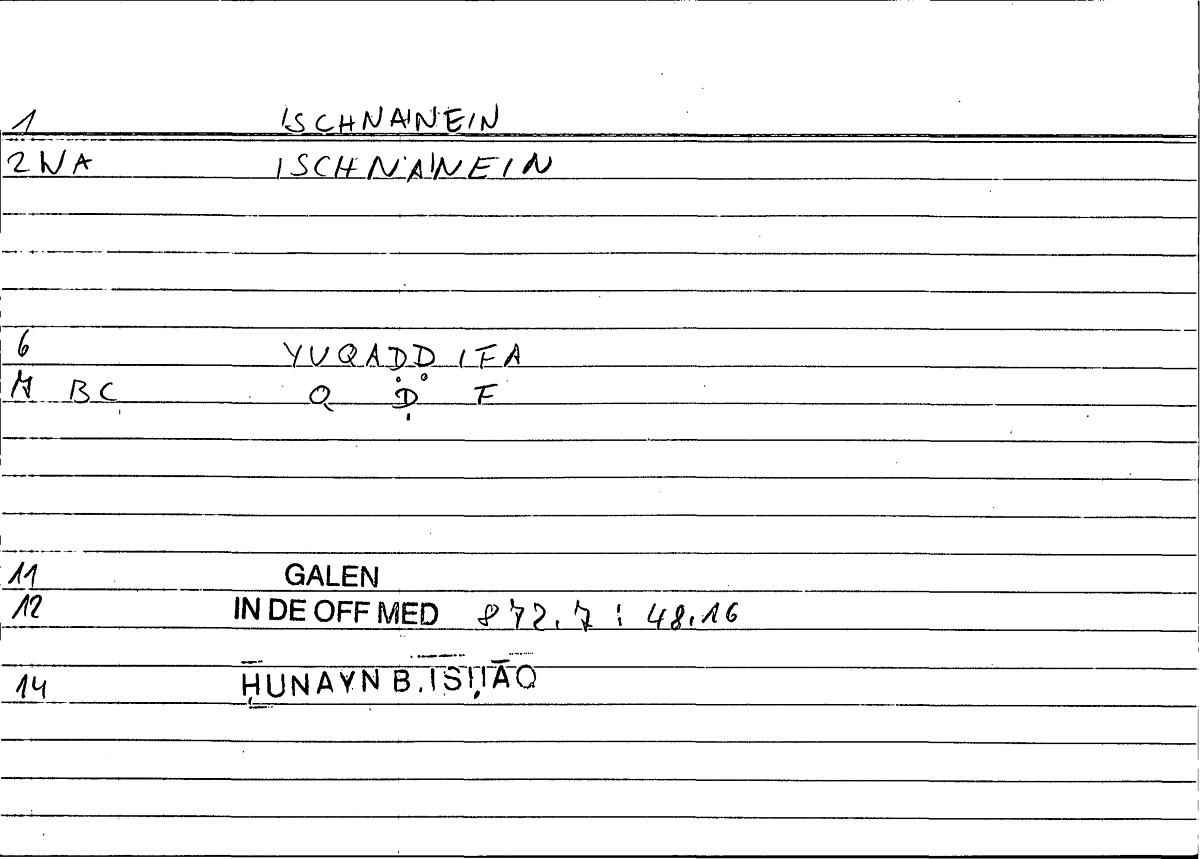 1 ISCHNAI'NEIN
2 WA ISCHNAI'NEIN
6 YUQAḌḌIFA
7 BC Q Ḍ F
11 GALEN
12 IN DE OFF MED 872.7 : 48.16
14 ḤUNAYN B. ISḤĀQ